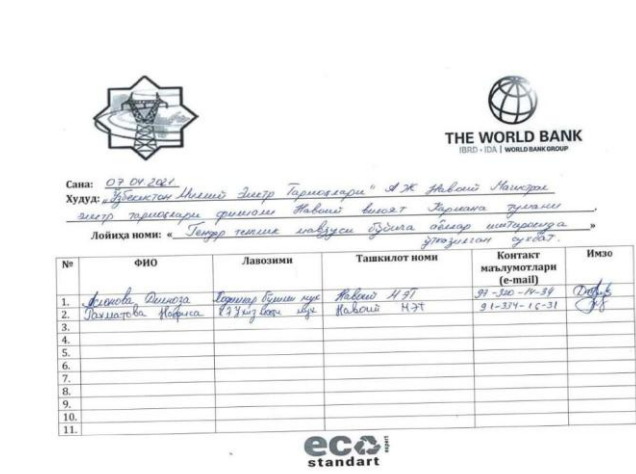 THE WORLD BANK
IBRD • IDA | WORLD BANK GROUP
Сана: 07.04.2021
Худуд: „Ўзбекистон Миллий Электр Тармоқлари" АЖ Навоий Магистрал
электр тармоқлари филиали Навоий вилоят Кармана тумани
Лойиҳа номи: « Гендер тенглик мавзуси бўйича аёллар иштирокида »
ўтказилган суҳбат.
№ ФИО Лавозими Ташкилот номи Контакт маълумотлари (e-mail) Имзо
1. Дилноза Ходимлар бўлими Навоий МЭТ
2. Рахматова Нафиса Навоий МЭТ 91-334-16-31
3.
4.
5.
6.
7.
8.
9.
10.
11.
eco expert
standart